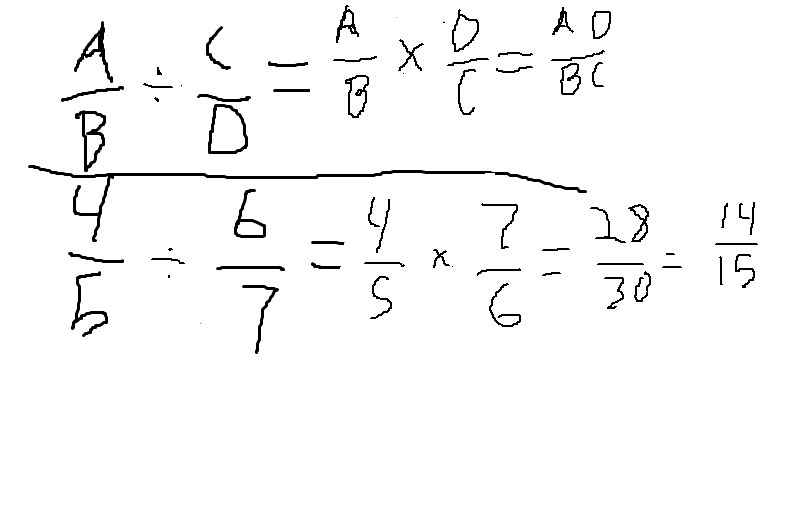 A/B ÷ C/D = A/B × D/C = AD/BC
4/5 ÷ 6/7 = 4/5 × 7/6 = 28/30 = 14/15